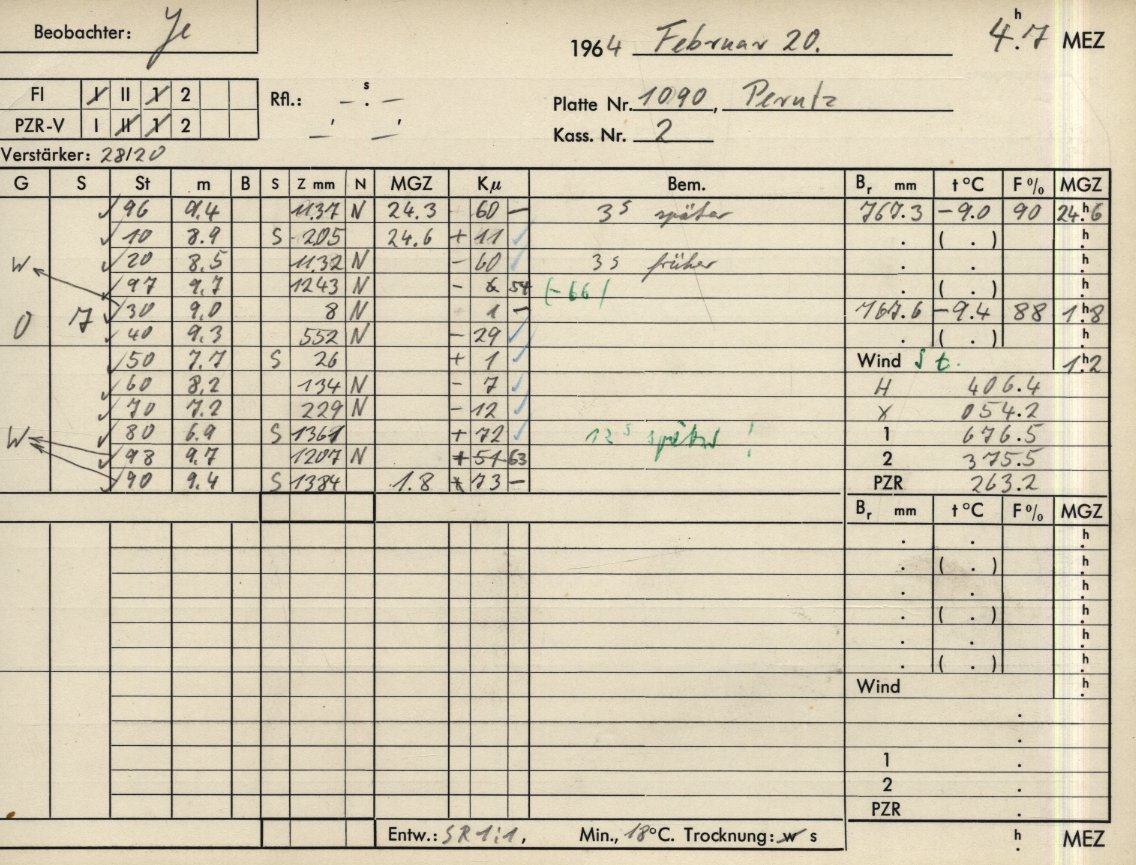 Beobachter: Je
1964 Februar 20. 4.h7 MEZ
FI I II 1 2 Rfl.: – . s –
Platte Nr. 1090, Perutz
PZR-V I II 1 2 –' –'
Kass. Nr. 2
Verstärker: 28/20
G S St m B S Z mm N MGZ Kμ Bem. Br mm t °C F % MGZ
✓ 96 9.4 1137 N 24.3 - 60 – 3s später 767.3 –9.0 90 24.h6
✓ 10 8.9 S 205 24.6 + 11 ✓ . ( . ) .h
W ✓ 20 8.5 1132 N - 60 ✓ 3s früher . . .h
✓ 97 9.7 1243 N - 54 (-66) . ( . ) .h
0 7 ✓ 30 9.0 8 N 1 – 767.6 –9.4 88 1.h8
✓ 40 9.3 552 N - 29 ✓ . ( . ) .h
✓ 50 7.7 S 26 + 1 ✓ Wind St. 1.h2
✓ 60 8.2 134 N - 7 ✓ H 406.4
✓ 70 7.2 229 N - 12 ✓ X 054.2
W ✓ 80 6.9 S 1361 + 72 ✓ 12s später ! 1 676.5
✓ 98 9.7 1207 N + 51 63 2 375.5
✓ 90 9.4 S 1384 1.8 + 73 – PZR 263.2
Br mm t °C F % MGZ
. . .h
. ( . ) .h
. . .h
. ( . ) .h
. . .h
. ( . ) .h
Wind .h
.
.
1 .
2 .
PZR .
Entw.: SR 1:1, Min., 18°C. Trocknung: w s .h MEZ